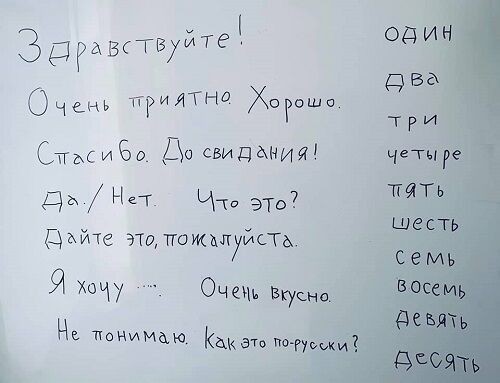 Здравствуйте!
Очень приятно. Хорошо.
Спасибо. До свидания!
Да./Нет. Что это?
Дайте это, пожалуйста.
Я хочу ....  Очень вкусно.
Не понимаю. Как это по-русски?
один
два
три
четыре
пять
шесть
семь
восемь
девять
десять